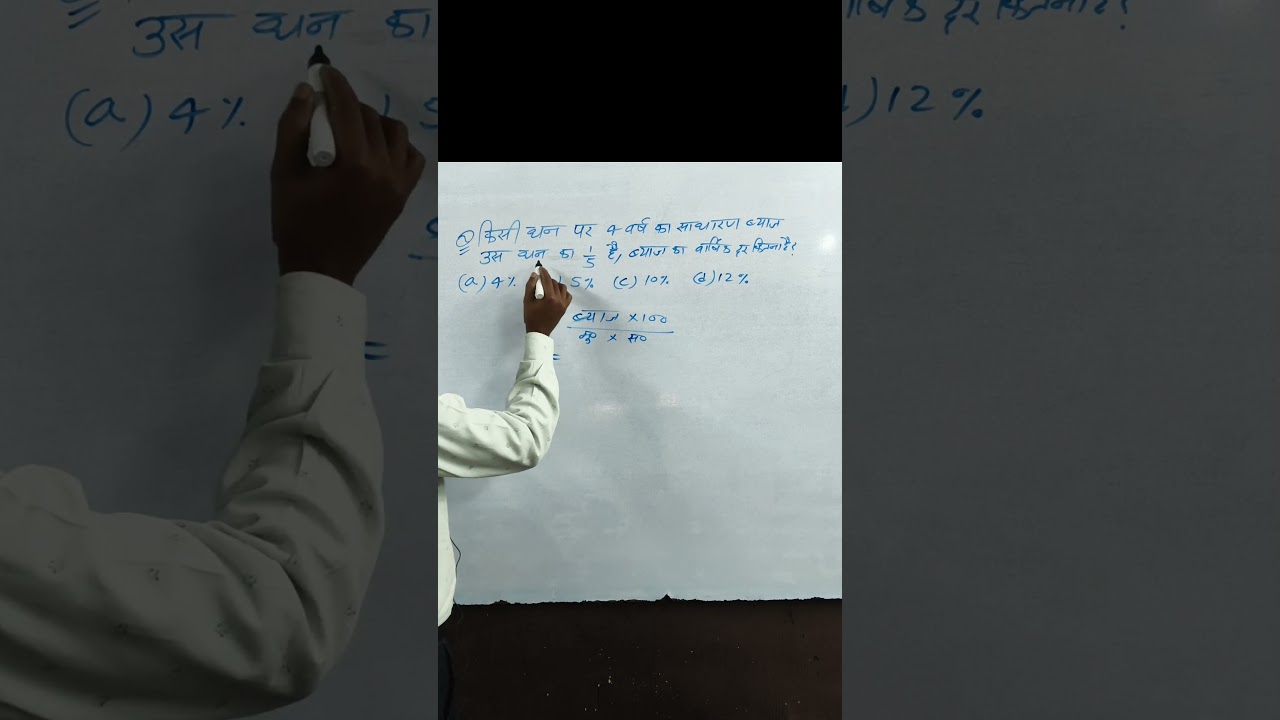 Q किसी धन पर 4 वर्ष का साधारण ब्याज
उस धन का 1/5 है, ब्याज का वार्षिक दर कितना है?
(a) 4% ) 5% (c) 10% (d) 12%
ब्याज × 100
मू० × स०
=